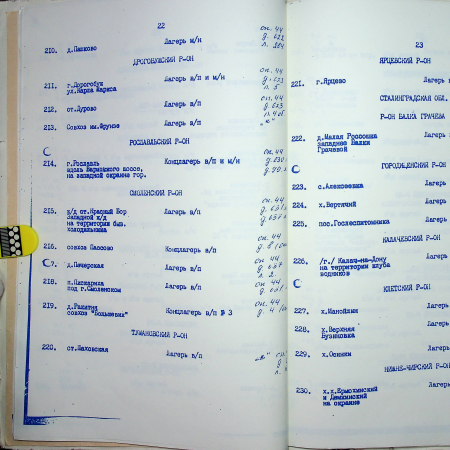 22
210. д.Пашково Лагерь м/н оп. 44
д. 622
л. 224
ДРОГОБУЖСКИЙ Р-ОН
211. г.Дорогобуж Лагерь в/п и м/н оп. 44
ул.Карла Маркса д. 623
л. 5
212. ст.Дурово Лагерь в/п оп. 44
д. 623
213. Совхоз им.Фрунзе Лагерь в/п
РОСЛАВЛЬСКИЙ Р-ОН
214. г.Рославль Концлагерь в/п и м/н оп. 44
вдоль Варшавского шоссе, д. 630
на западной окраине гор.
СМОЛЕНСКИЙ Р-ОН
215. ж/д ст.Красный Бор Лагерь в/п оп. 44
Западной ж/д
на территории быв.
холодильника
216. совхоз Пасово Концлагерь в/п оп. 44
7. д.Печерская Лагерь в/п оп. 44
д. 657
л. 2
218. п.Пискариха Лагерь в/п оп. 44
под г.Смоленском
219. д.Ракитня Концлагерь в/п № 3 оп. 44
совхоз "Большевик"
ТУМАНОВСКИЙ Р-ОН
220. ст.Шаховская Лагерь в/п
23
ЯРЦЕВСКИЙ Р-ОН
221. г.Ярцево Лагерь
СТАЛИНГРАДСКАЯ ОБЛ.
Р-ОН БАЛКА ГРАЧЕВА
222. д.Малая Россошка Лагерь
западнее Балки
Грачевой
ГОРОДИЩЕНСКИЙ Р-ОН
223. с.Алексеевка Лагерь
224. х.Вертячий Лагерь
225. пос.Госпеспитомника Лагерь
КАЛАЧЕВСКИЙ Р-ОН
226. /г/ Калач-на-Дону Лагерь
на территории клуба
водников
КЛЕТСКИЙ Р-ОН
227. х.Манойлин Лагерь
228. х.Верхняя Лагерь
Бузиновка
229. х.Осинки Лагерь
НИЖНЕ-ЧИРСКИЙ Р-ОН
230. х.х.Ермохинский Лагерь
и Демкинский
на окраине